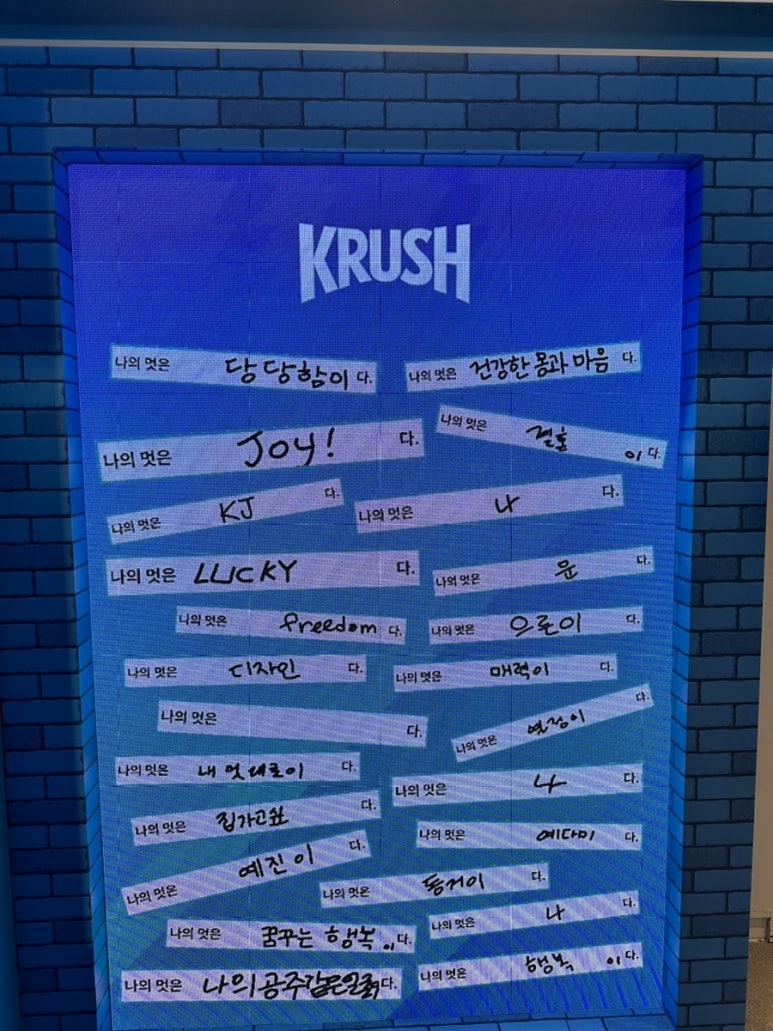 KRUSH
나의 멋은 당당함이 다.
나의 멋은 건강한 몸과 마음 다.
나의 멋은 Joy! 다.
나의 멋은 결혼 이 다.
나의 멋은 KJ 다.
나의 멋은 나 다.
나의 멋은 LUCKY 다.
나의 멋은 윤 다.
나의 멋은 freedom 다.
나의 멋은 으른이 다.
나의 멋은 디자인 다.
나의 멋은 매력이 다.
나의 멋은 다.
나의 멋은 열정이 다.
나의 멋은 내 멋대로이 다.
나의 멋은 나 다.
나의 멋은 집가고싶 다.
나의 멋은 예다미 다.
나의 멋은 예진이 다.
나의 멋은 동거이 다.
나의 멋은 꿈꾸는 행복 이 다.
나의 멋은 나 다.
나의 멋은 나의공주같은 다.
나의 멋은 행복 이 다.